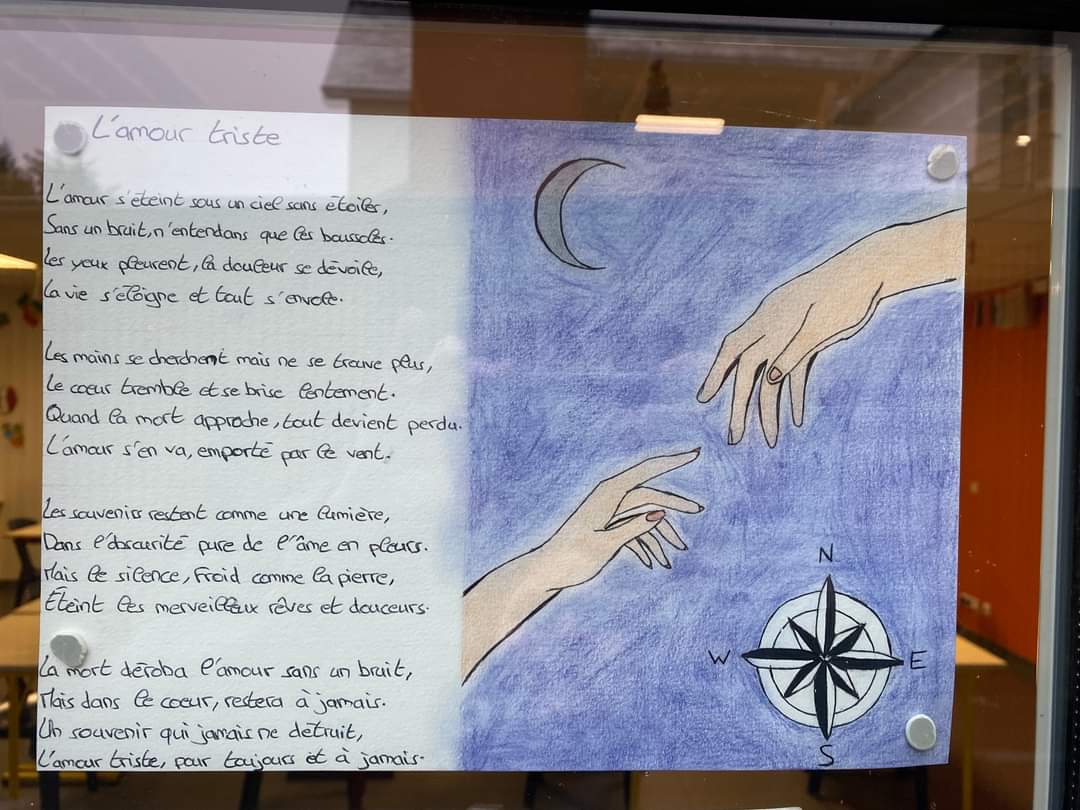 L'amour triste
L'amour s'éteint sous un ciel sans étoiles,
Sans un bruit, n'entendans que les boussoles.
Les yeux pleurent, la douleur se dévoile,
La vie s'éloigne et tout s'envole.
Les mains se cherchent mais ne se trouve plus,
Le cœur tremble et se brise lentement.
Quand la mort approche, tout devient perdu.
L'amour s'en va, emporté par le vent.
Les souvenirs restent comme une lumière,
Dans l'obscurité pure de l'âme en pleurs.
Mais le silence, froid comme la pierre,
Éteint les merveilleux rêves et douceurs.
La mort déroba l'amour sans un bruit,
Mais dans le coeur, restera à jamais.
Un souvenir qui jamais ne détruit,
L'amour triste, pour toujours et à jamais.
N
W E
S